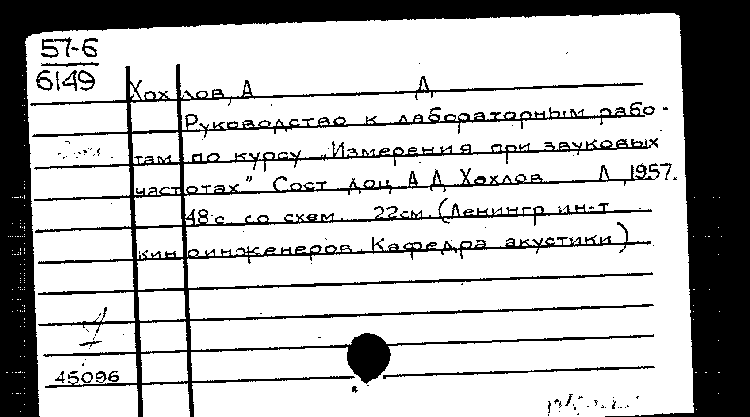 57-6
6149
Хохлов, А Д
Руководство к лабораторным рабо-
там по курсу „Измерения при звуковых
частотах" Сост доц А Д Хохлов Л, 1957.
48 с со схем. 22см. (Ленингр ин-т
киноинженеров. Кафедра акустики)
45096